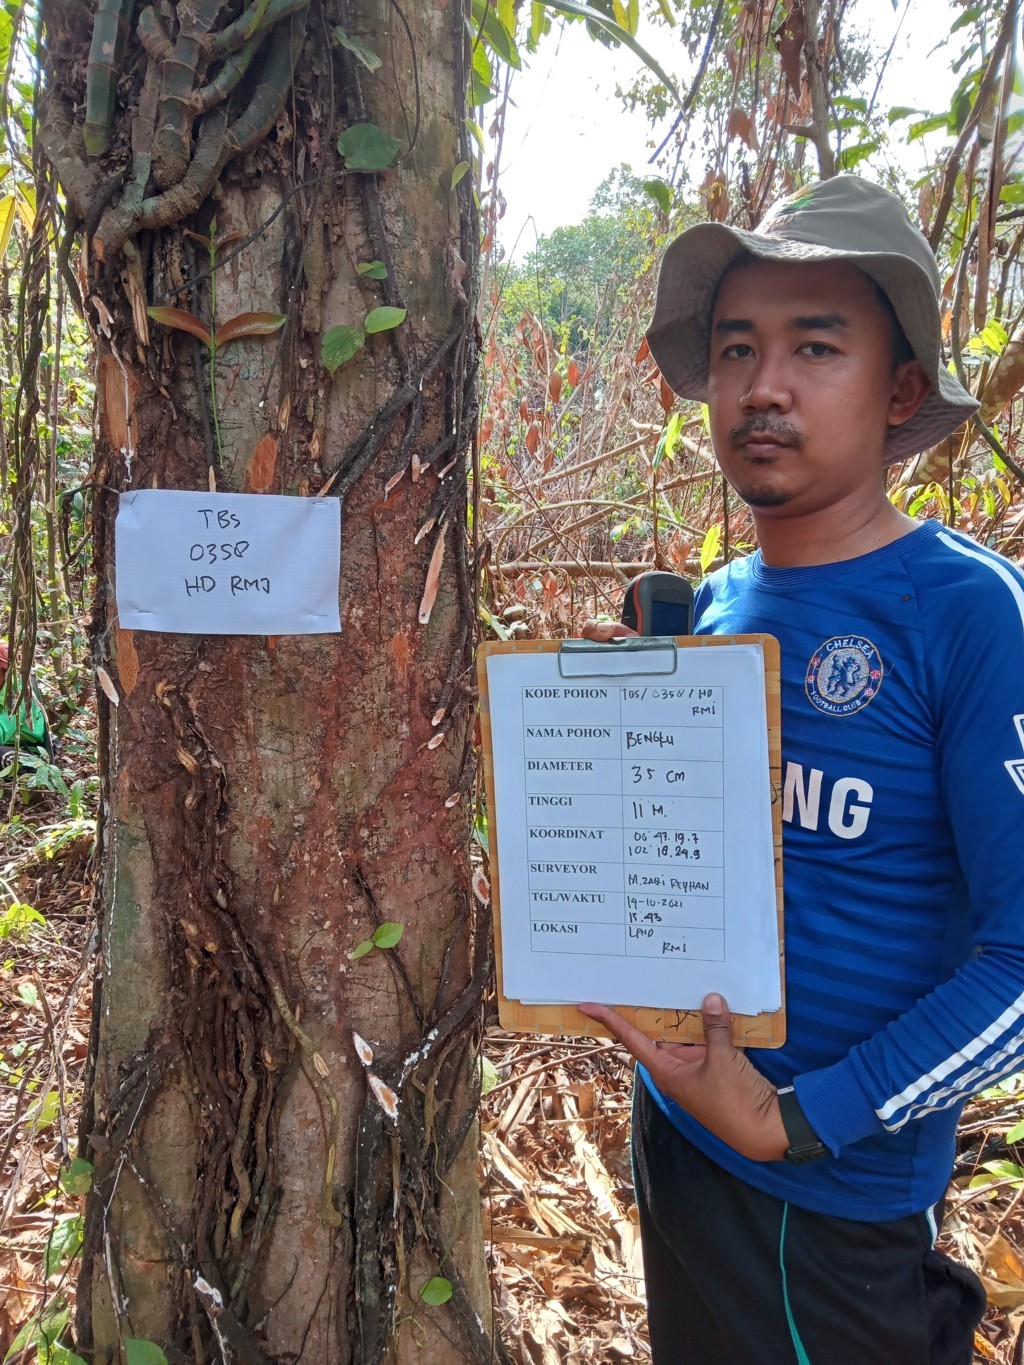 TBS
0358
HD RMJ
KODE POHON TBS/0358/HD
RMI
NAMA POHON BENGKU
DIAMETER 35 CM
TINGGI 11 M.
KOORDINAT 06.47.19.7
102.18.24.9
SURVEYOR M.ZAQI REYHAN
TGL/WAKTU 14-10-2021
15.43
LOKASI LPHD
RMI
CHELSEA
FOOTBALL CLUB
NG